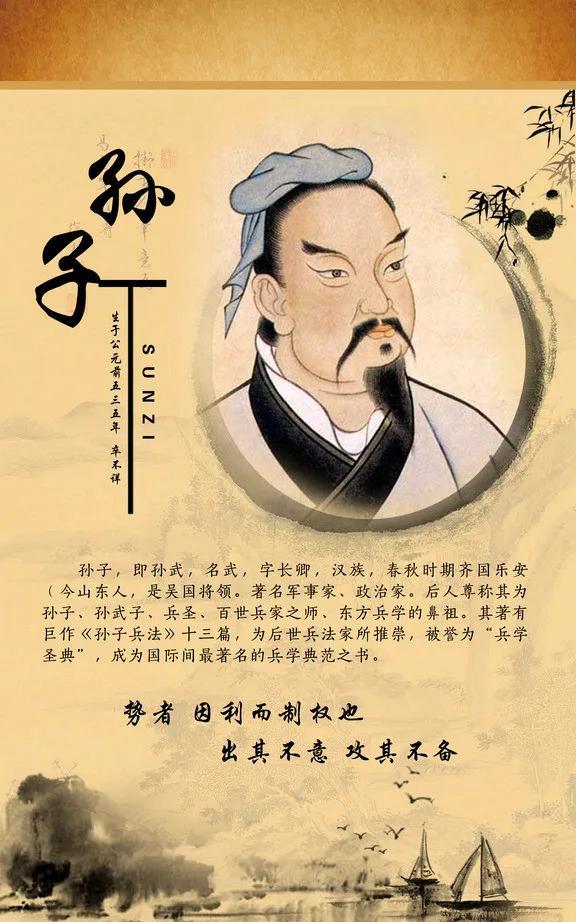 孙子
生于公元前五三五年 卒不详
SUNZI
孙子，即孙武，名武，字长卿，汉族，春秋时期齐国乐安
（今山东人，是吴国将领。著名军事家、政治家。后人尊称其为
孙子、孙武子、兵圣、百世兵家之师、东方兵学的鼻祖。其著有
巨作《孙子兵法》十三篇，为后世兵法家所推崇，被誉为“兵学
圣典”，成为国际间最著名的兵学典范之书。
势者 因利而制权也
出其不意 攻其不备